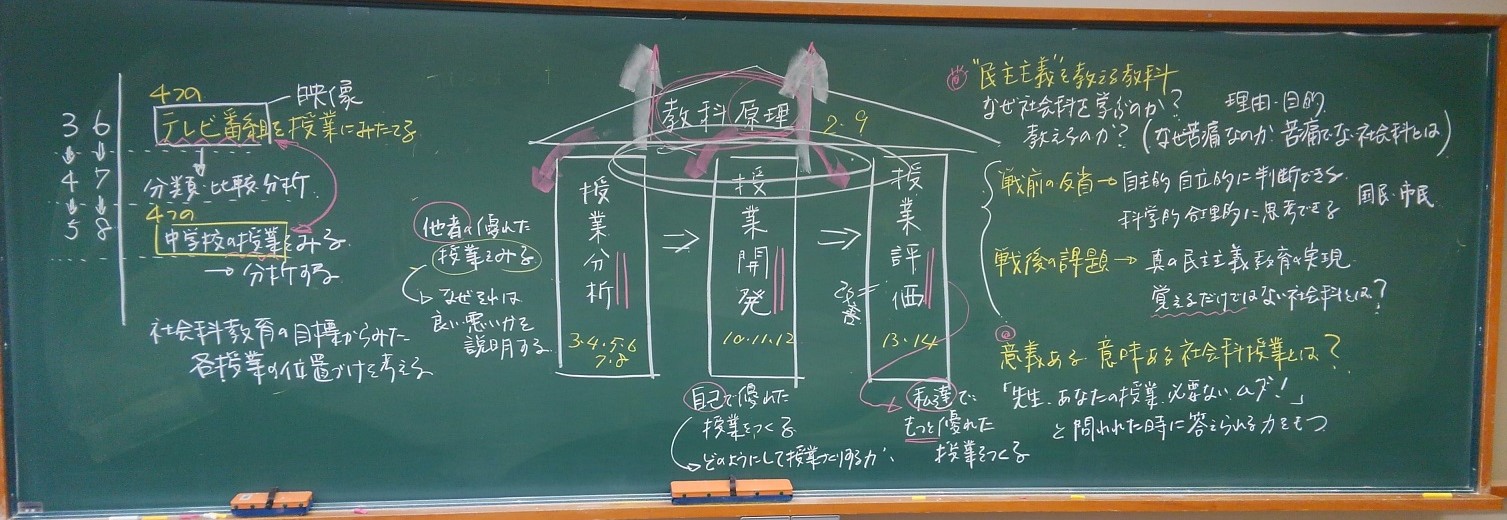 3 6
4 7
5 8
4つの
映像
テレビ番組を授業にみたてる
分類・比較・分析
4つの
中学校の授業をみる
→ 分析する
社会科教育の目標からみた
各授業の位置づけを考える
他者の優れた
授業をみる
なぜそれは
良い悪いかを
説明する
教科原理
2・9
授業分析
3・4・5・6
7・8
⇒
授業開発
10・11・12
⇒
授業評価
13・14
改善
自己で優れた
授業をつくる
どのようにして授業づくりするか
私達で
もっと優れた
授業をつくる
"民主主義"を教える教科
なぜ社会科を学ぶのか? 理由・目的
教えるのか? (なぜ苦痛なのか 苦痛でない社会科とは)
戦前の反省→自主的 自立的に判断できる
科学的 合理的に思考できる
国民・市民
戦後の課題→真の民主主義教育の実現
覚えるだけではない社会科とは?
意義ある 意味ある社会科授業とは?
「先生、あなたの授業、必要ない、ムダ!」
と問われた時に答えられる力をもつ